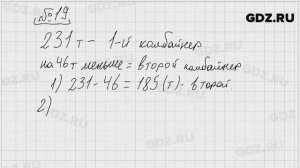 № 19
GDZ.RU
231 т - 1-й комбайнер
на 46т меньше = второй комбайнер
1) 231 - 46 = 185 (т) - второй
2)
GDZ.RU